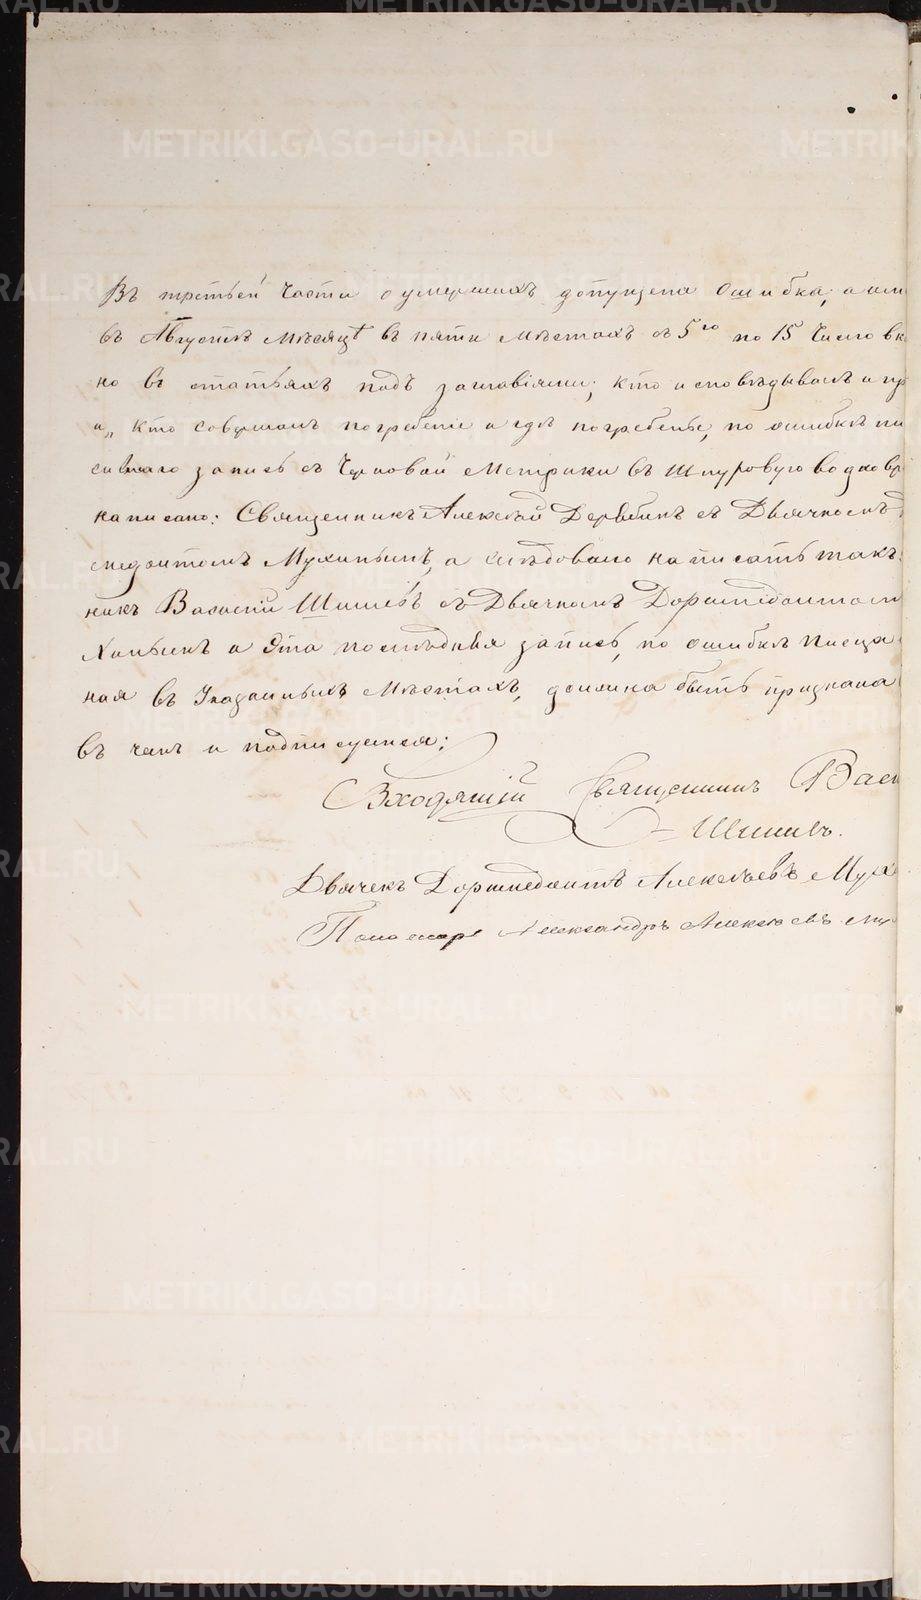 Въ третьей части о умершихъ допущена ошибка; а им
въ Августѣ мѣсяцѣ въ пяти мѣстахъ съ 5го по 15 число вк
но въ статьяхъ подъ заглавіями; кто исповѣдывалъ и пр
и„ кто совершалъ погребеніе и гдѣ погребены, по ошибкѣ пи
савшаго запись съ черновой метрики въ шнуровую
написано: Священникъ Алексѣй Дерябинъ съ Дьячкомъ Д
медонтомъ Мухинымъ, а слѣдовало написать такъ:
никъ Василій Шишевъ съ Дьячкомъ Дормедонтом
хинымъ и эта послѣдняя запись, по ошибкѣ писца
ная въ указанныхъ мѣстахъ, должна быть признана
въ чемъ и подписуемся;
Входящій Священникъ Васи
Шишевъ.
Дьячекъ Дормедонтъ Алексѣевъ Мух
Пономарь Александръ Алексѣевъ Му
METRIKI.GASO-URAL.RU